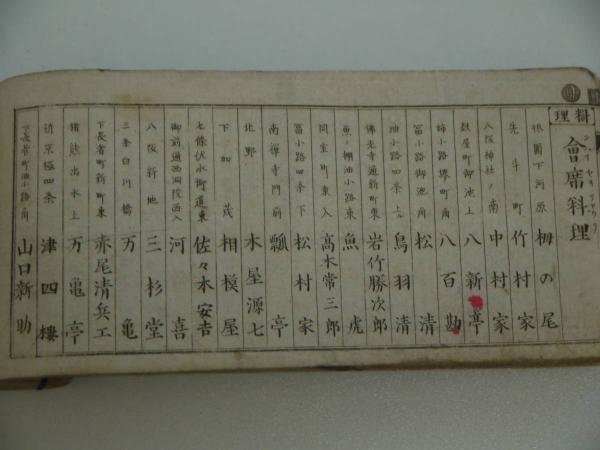 料理
會席料理
祇園下河原 栂の尾
先斗町 竹村家
八阪神社ノ南 中村家
麩屋町御池上 八新亭
姉小路堺町角 八百勘
富小路御池角 松清
油小路四条上 鳥羽清
佛光寺通新町東 岩竹勝次郎
魚ノ棚油小路東 魚虎
同室町東入 高木常三郎
富小路四条下 松村家
南禅寺門前 瓢亭
北野 木屋源七
下加茂 相模屋
七條伏水街道東 佐々木安吉
御前通西洞院西入 河喜
八阪新地 三杉堂
三条白川橋 万亀
下長者町新町東 赤尾清兵工
猪熊出水上 万亀亭
新京極四条 津四樓
下長者町油小路角 山口新助